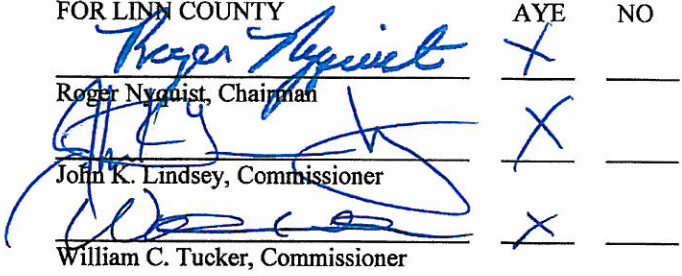 FOR LINN COUNTY AYE NO
Roger Nyquist X
Roger Nyquist, Chairman
X
John K. Lindsey, Commissioner
X
William C. Tucker, Commissioner